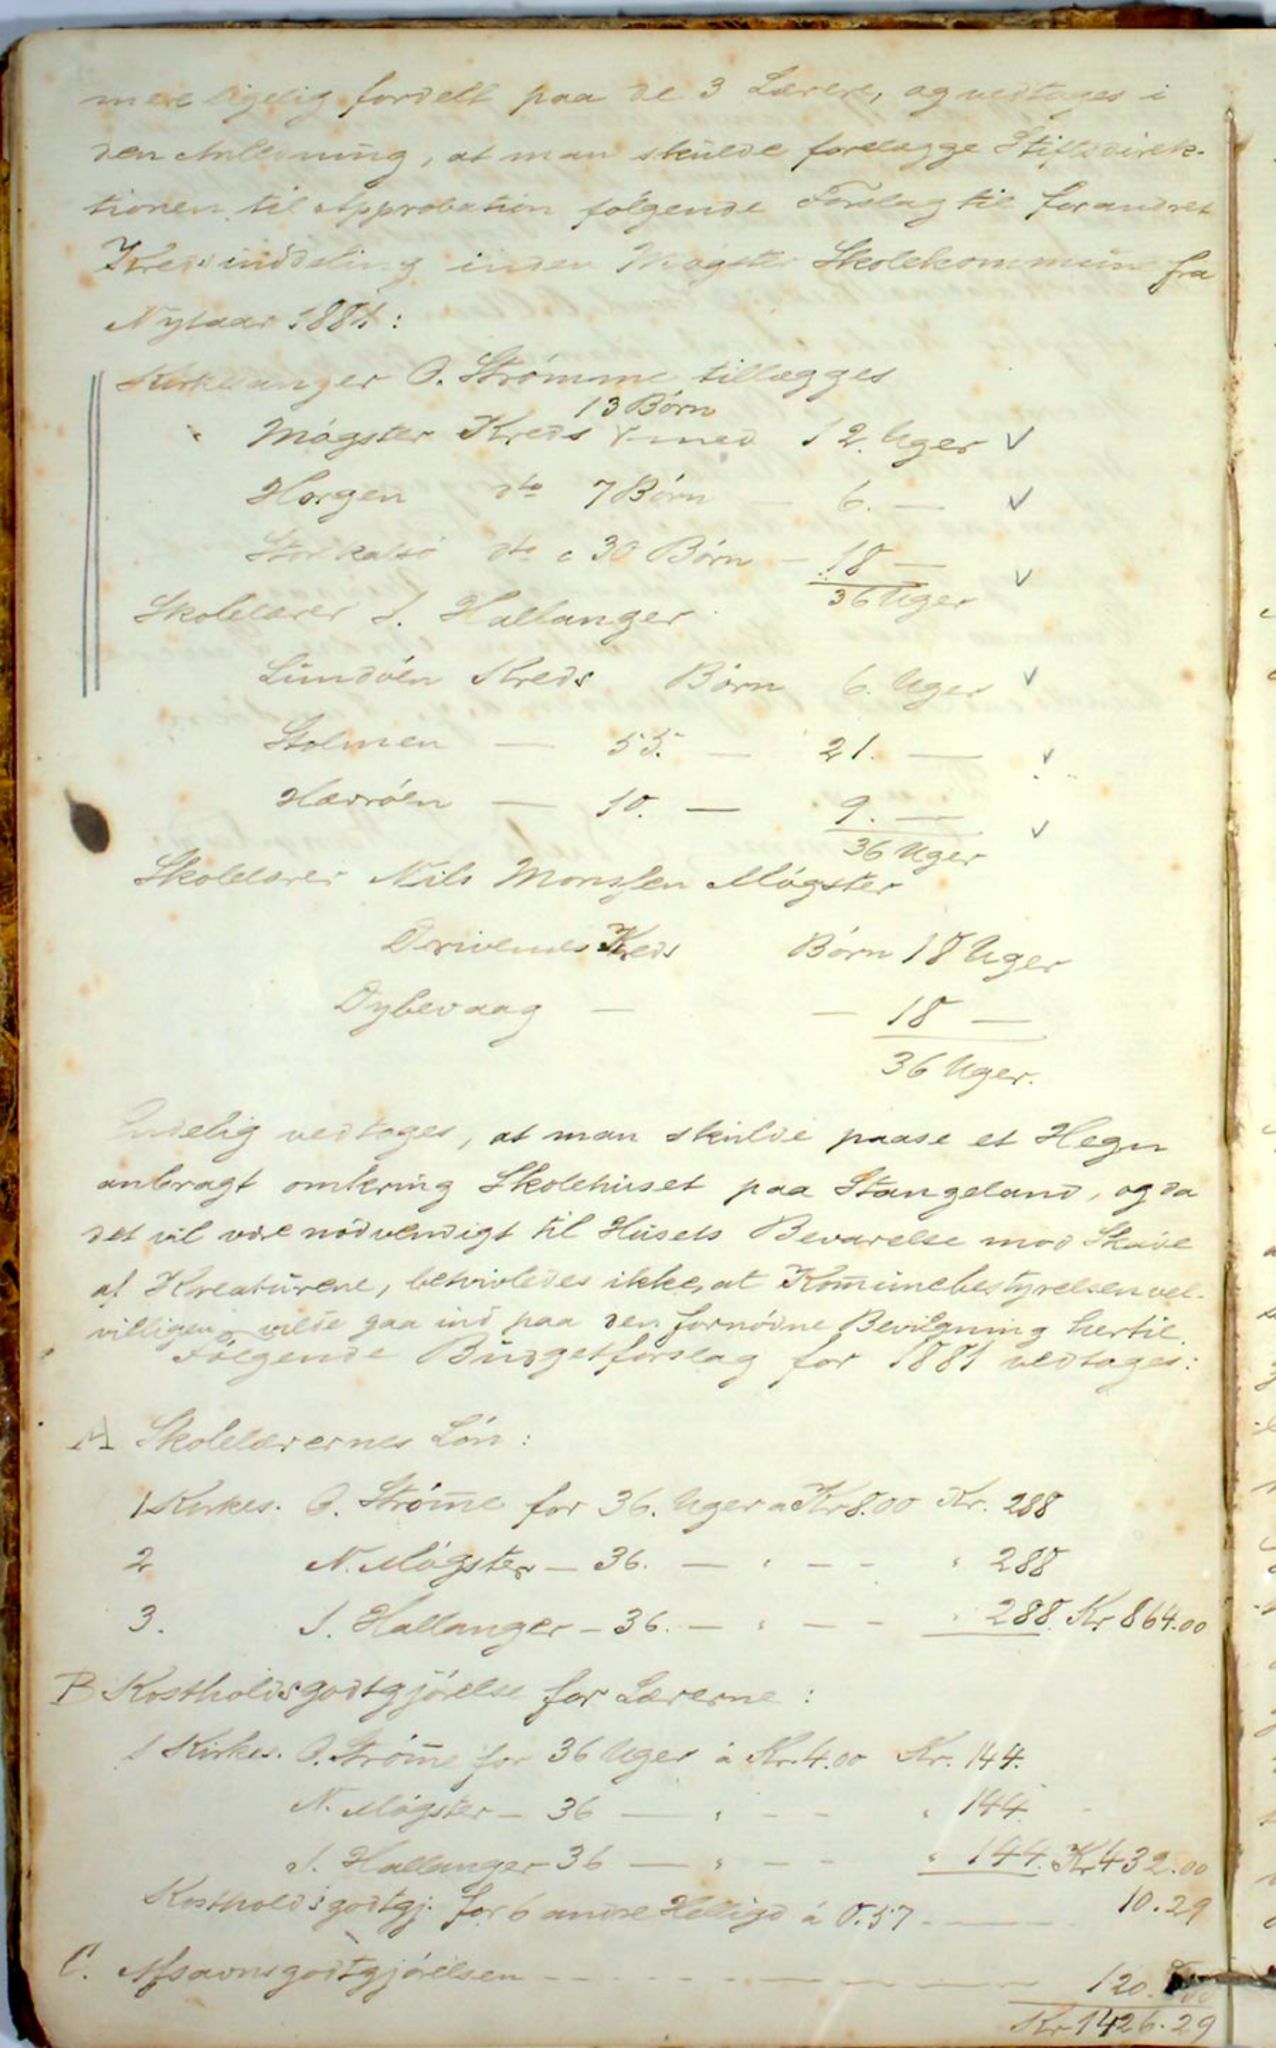 mere ligelig fordelt paa de 3 Lærere, og vedtoges i
den Anledning, at man skulde forelægge Stiftsdirek-
tionen til Approbation følgende Forslag til forandret
Kredsinddeling inden Møgster Skolekommune fra
Nytaar 1881:
Kirkesanger O. Strømme tillægges
13 Børn
Møgster Kreds med 12. Uger ✓
Horgen do 7 Børn — 6. — ✓
Storkalsø do c 30 Børn — 18 — ✓
36 Uger
Skolelærer J. Hallanger
Lundøen Kreds Børn 6. Uger ✓
Stolmen — 55. — 21. — ✓
Hærøen — 10. — 9. — ✓
36 Uger
Skolelærer Nils Monssen Møgster
Drivenes Kreds Børn 18 Uger
Dybevaag — — 18 —
36 Uger.
Endelig vedtoges, at man skulde paase et Hegn
anbragt omkring Skolehuset paa Stangeland, og da
det vil være nødvendigt til Husets Bevarelse mod Skade
af Kreaturene, betvivledes ikke, at Komunebestyrelsen vel-
villigen vilde gaa ind paa den fornødne Bevilgning hertil.
Følgende Budgetforslag for 1881 vedtoges:
A Skolelærernes Løn:
1 Kirkes. O. Strøme for 36. Uger a Kr 8.00 Kr. 288
2 N. Møgster — 36. — " — - " 288
3. J. Hallanger — 36. — " — - " 288. Kr 864.00
B Kostholdsgodtgjørelse for Lærerne:
1 Kirkes. O. Strøme for 36 Uger á Kr. 4.00 Kr. 144.
N. Møgster — 36 — " - - " 144.
J. Hallanger 36 — " - - " 144. Kr 432.00
Kostholdsgodtgj. for 6 andre Helligd á 0.57 — 10.29
C. Afsavnsgodtgjørelsen — 120.
Kr 1426.29